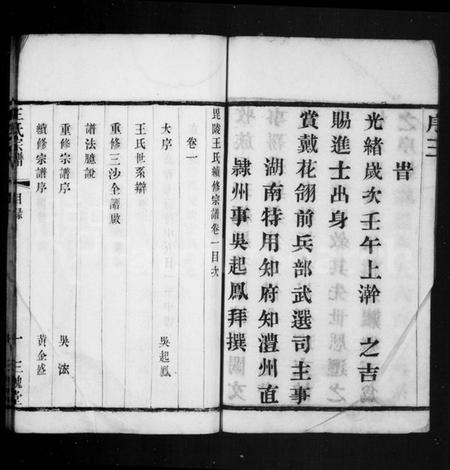 序三
昔
光緒歲次壬午上澣 之吉
賜進士出身
賞戴花翎前兵部武選司主事
湖南特用知府知澧州直
隸州事吳起鳳拜撰
毘陵王氏續修宗譜卷一目次
卷一
大序 吳起鳳
王氏世系辯
譜法臆說
重修三沙全譜啟
重修宗譜序 吳浤
續修宗譜序 黃金盛
王氏宗譜
目錄
十
三槐堂